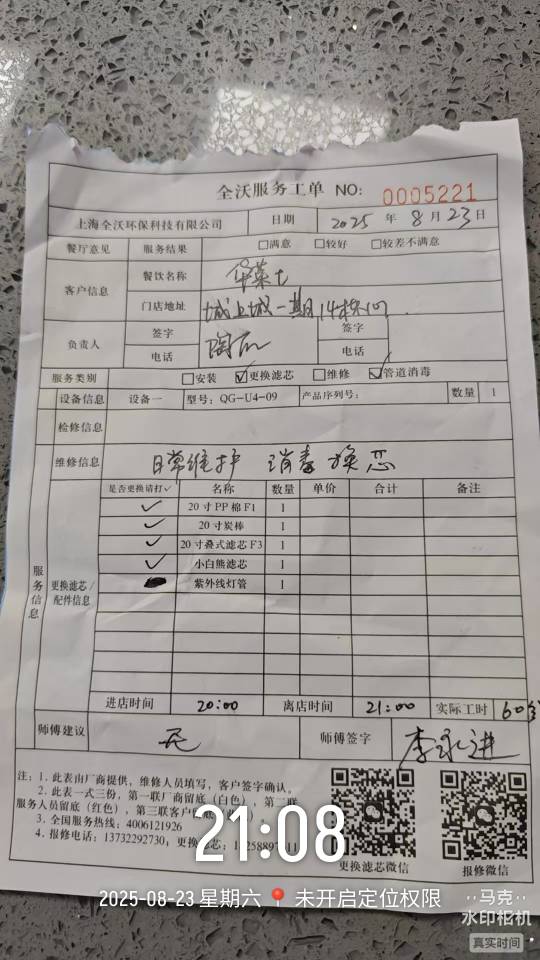 全沃服务工单 NO: 0005221
上海全沃环保科技有限公司 日期 2025 年 8 月 23 日
餐厅意见 服务结果 □满意 □较好 □较差不满意
客户信息 餐饮名称 华莱士
门店地址 城上城一期14栋
负责人 签字 签字
电话 电话
服务类别 □安装 ☑更换滤芯 □维修 ☑管道消毒
设备信息 设备一 型号: QG-U4-09 产品序列号: 数量 1
检修信息
维修信息 日常维护 消毒 换芯
服务信息
更换滤芯/配件信息
是否更换请打✓ 名称 数量 单价 合计 备注
✓ 20寸PP棉F1 1
✓ 20寸炭棒 1
✓ 20寸叠式滤芯F3 1
✓ 小白熊滤芯 1
紫外线灯管 1
进店时间 20:00 离店时间 21:00 实际工时 60分
师傅建议 无 师傅签字 李永进
注: 1. 此表由厂商提供，维修人员填写，客户签字确认。
2. 此表一式三份，第一联厂商留底（白色），第二联
服务人员留底（红色），第三联客户
3. 全国服务热线: 4006121926
4. 报修电话: 13732292730, 更换滤芯:
更换滤芯微信 报修微信
21:08
2025-08-23 星期六 未开启定位权限
马克
水印相机
真实时间